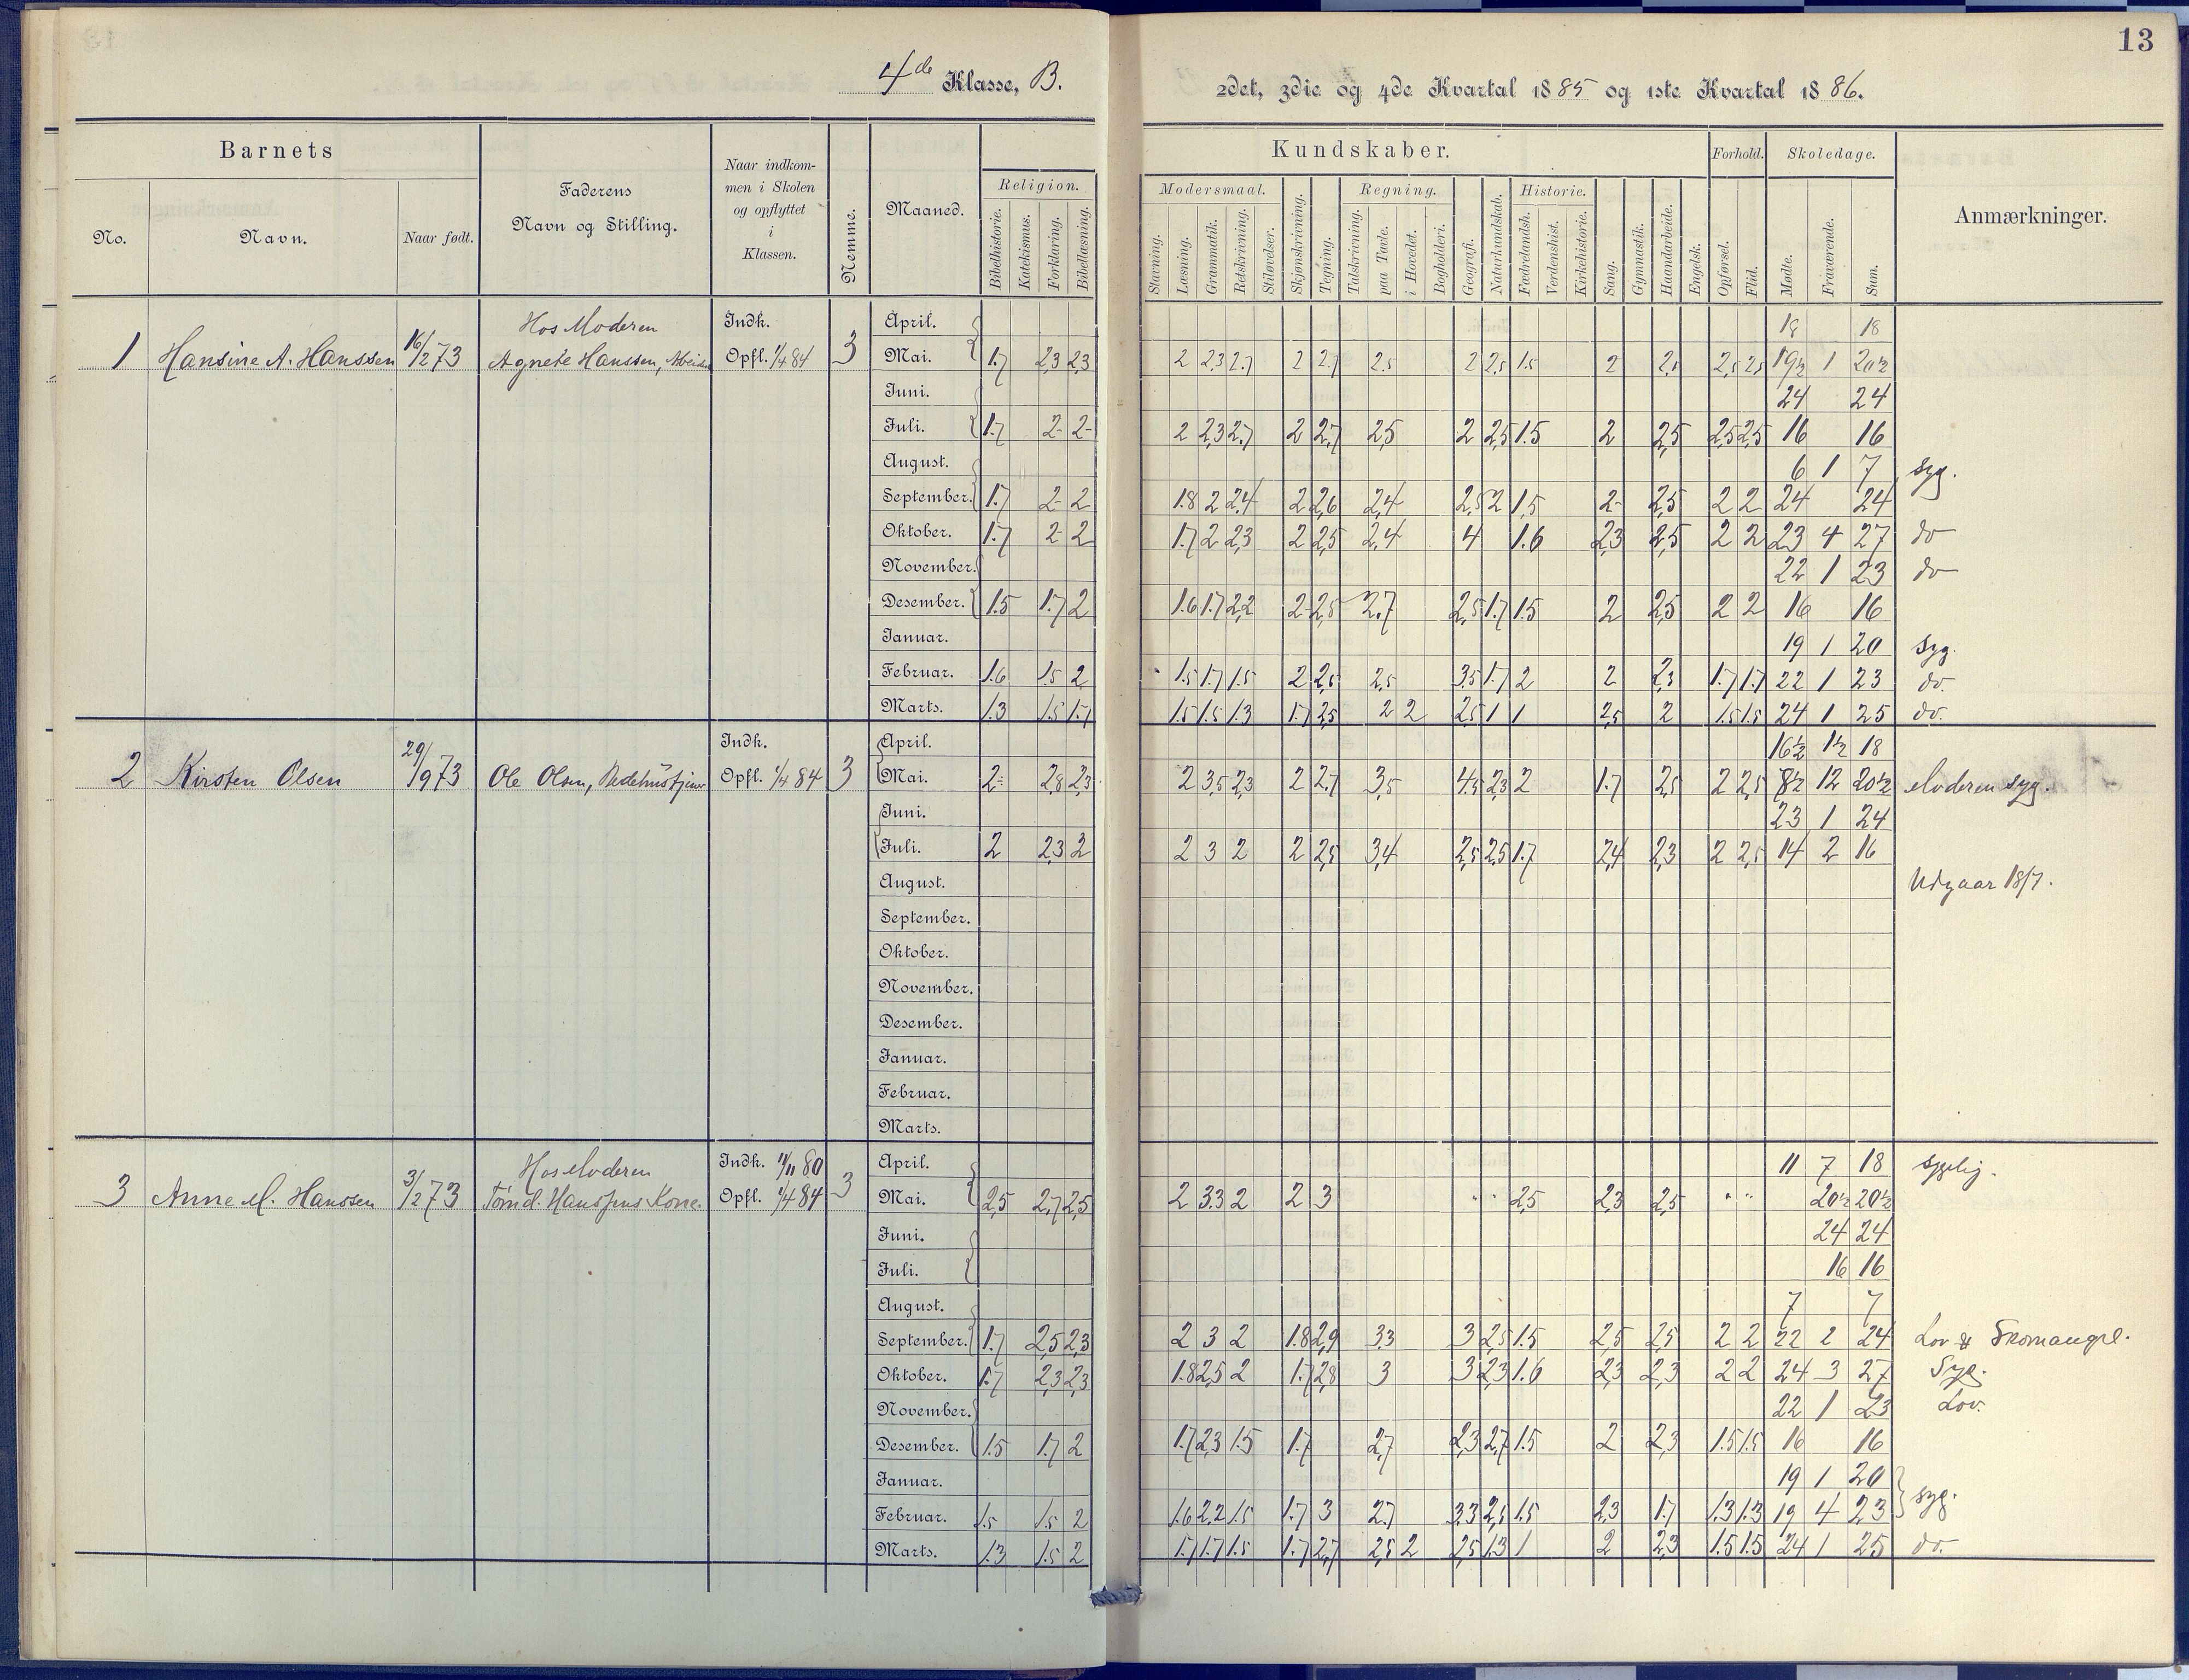 13
4de Klasse, B.
2det, 3die og 4de Kvartal 1885 og 1ste Kvartal 1886.
Barnets
Faderens
Navn og Stilling.
Naar indkom-
men i Skolen
og opflyttet
i
Klassen.
Nemme.
Maaned.
Religion.
Kundskaber.
Forhold.
Skoledage.
Anmærkninger.
Modersmaal.
Regning.
Historie.
No.
Navn.
Naar født.
Bibelhistorie.
Katekismus.
Forklaring.
Bibellæsning.
Stavning.
Læsning.
Grammatik.
Retskrivning.
Stiløvelser.
Skjønskrivning.
Tegning.
Talskrivning.
paa Tavle.
i Hovedet.
Bogholderi.
Geografi.
Naturkundskab.
Fædrelandsh.
Verdenshist.
Kirkehistorie.
Sang.
Gymnastik.
Haandarbeide.
Engelsk.
Opførsel.
Flid.
Mødte.
Fraværende.
Sum.
Hos Moderen
Indk.
April. 18 18
1 Hansine A. Hanssen 16/2 73 Agnete Hanssen, Opfl. 1/4 84 3
Mai. 1.7 2,3 2,3 2 2,3 2.7 2 2.7 2.5 2 2,5 1.5 2 2,5 2,5 2,5 19½ 1 20½
Juni. 24 24
Juli. 1.7 2 2 2 2,3 2.7 2 2,7 2,5 2 2,5 1.5 2 2,5 2,5 2,5 16 16
August. 6 1 7 Syg.
September. 1.7 2 2 1.8 2 2,4 2 2,6 2,4 2,5 2 1,5 2 2,5 2 2 24 24
Oktober. 1.7 2 2 1.7 2 2,3 2 2,5 2,4 4 1.6 2,3 2,5 2 2 23 4 27 do
November. 22 1 23 do
Desember. 1.5 1.7 2 1.6 1.7 2,2 2 2,5 2.7 2,5 1.7 1.5 2 2,5 2 2 16 16
Januar. 19 1 20 Syg.
Februar. 1.6 1.5 2 1.5 1.7 1.5 2 2,5 2,5 3,5 1.7 2 2 2,3 1.7 1.7 22 1 23 do.
Marts. 1.3 1.5 1.7 1.5 1.5 1.3 1.7 2,5 2 2 2,5 1 1 2,5 2 1.5 1.5 24 1 25 do.
Indk.
April. 16½ 1½ 18
2 Kirsten Olsen 29/9 73 Ole Olsen, Opfl. 1/4 84 3
Mai. 2 2,8 2,3 2 3,5 2,3 2 2.7 3,5 4,5 2,3 2 1.7 2,5 2 2,5 8½ 12 20½ Moderen syg.
Juni. 23 1 24
Juli. 2 2,3 2 2 3 2 2 2,5 3,4 2,5 2,5 1.7 2,4 2,3 2 2,5 14 2 16
August. Udgaar 18/7.
September.
Oktober.
November.
Desember.
Januar.
Februar.
Marts.
Hos Moderen
Indk. 11/11 80
April. 11 7 18 Sygelig.
3 Anne M. Hanssen 3/2 73 Opfl. 1/4 84 3
Mai. 2,5 2,7 2,5 2 3,3 2 2 3 2,5 2,3 2,5 20½ 20½
Juni. 24 24
Juli. 16 16
August. 7 7
September. 1.7 2,5 2,3 2 3 2 1.8 2,9 3,3 3 2,5 1.5 2,5 2,5 2 2 22 2 24 Lov & Skomangel.
Oktober. 1.7 2,3 2,3 1.8 2,5 2 1.7 2,8 3 3 2,3 1.6 2,3 2,3 2 2 24 3 27 Syg.
November. 22 1 23 Lov.
Desember. 1.5 1.7 2 1.7 2,3 1.5 1.7 2,7 2,3 2,7 1.5 2 2,3 1.5 1.5 16 16
Januar. 19 1 20
Februar. 1.5 1.5 2 1.6 2,2 1.5 1.7 3 2,7 3,3 2,5 1.5 2,3 1.7 1.3 1.3 19 4 23 syg.
Marts. 1.3 1.5 2 1.7 1.7 1.5 1.7 2,7 2,5 2 2,5 1.3 1 2 2,3 1.5 1.5 24 1 25 do.